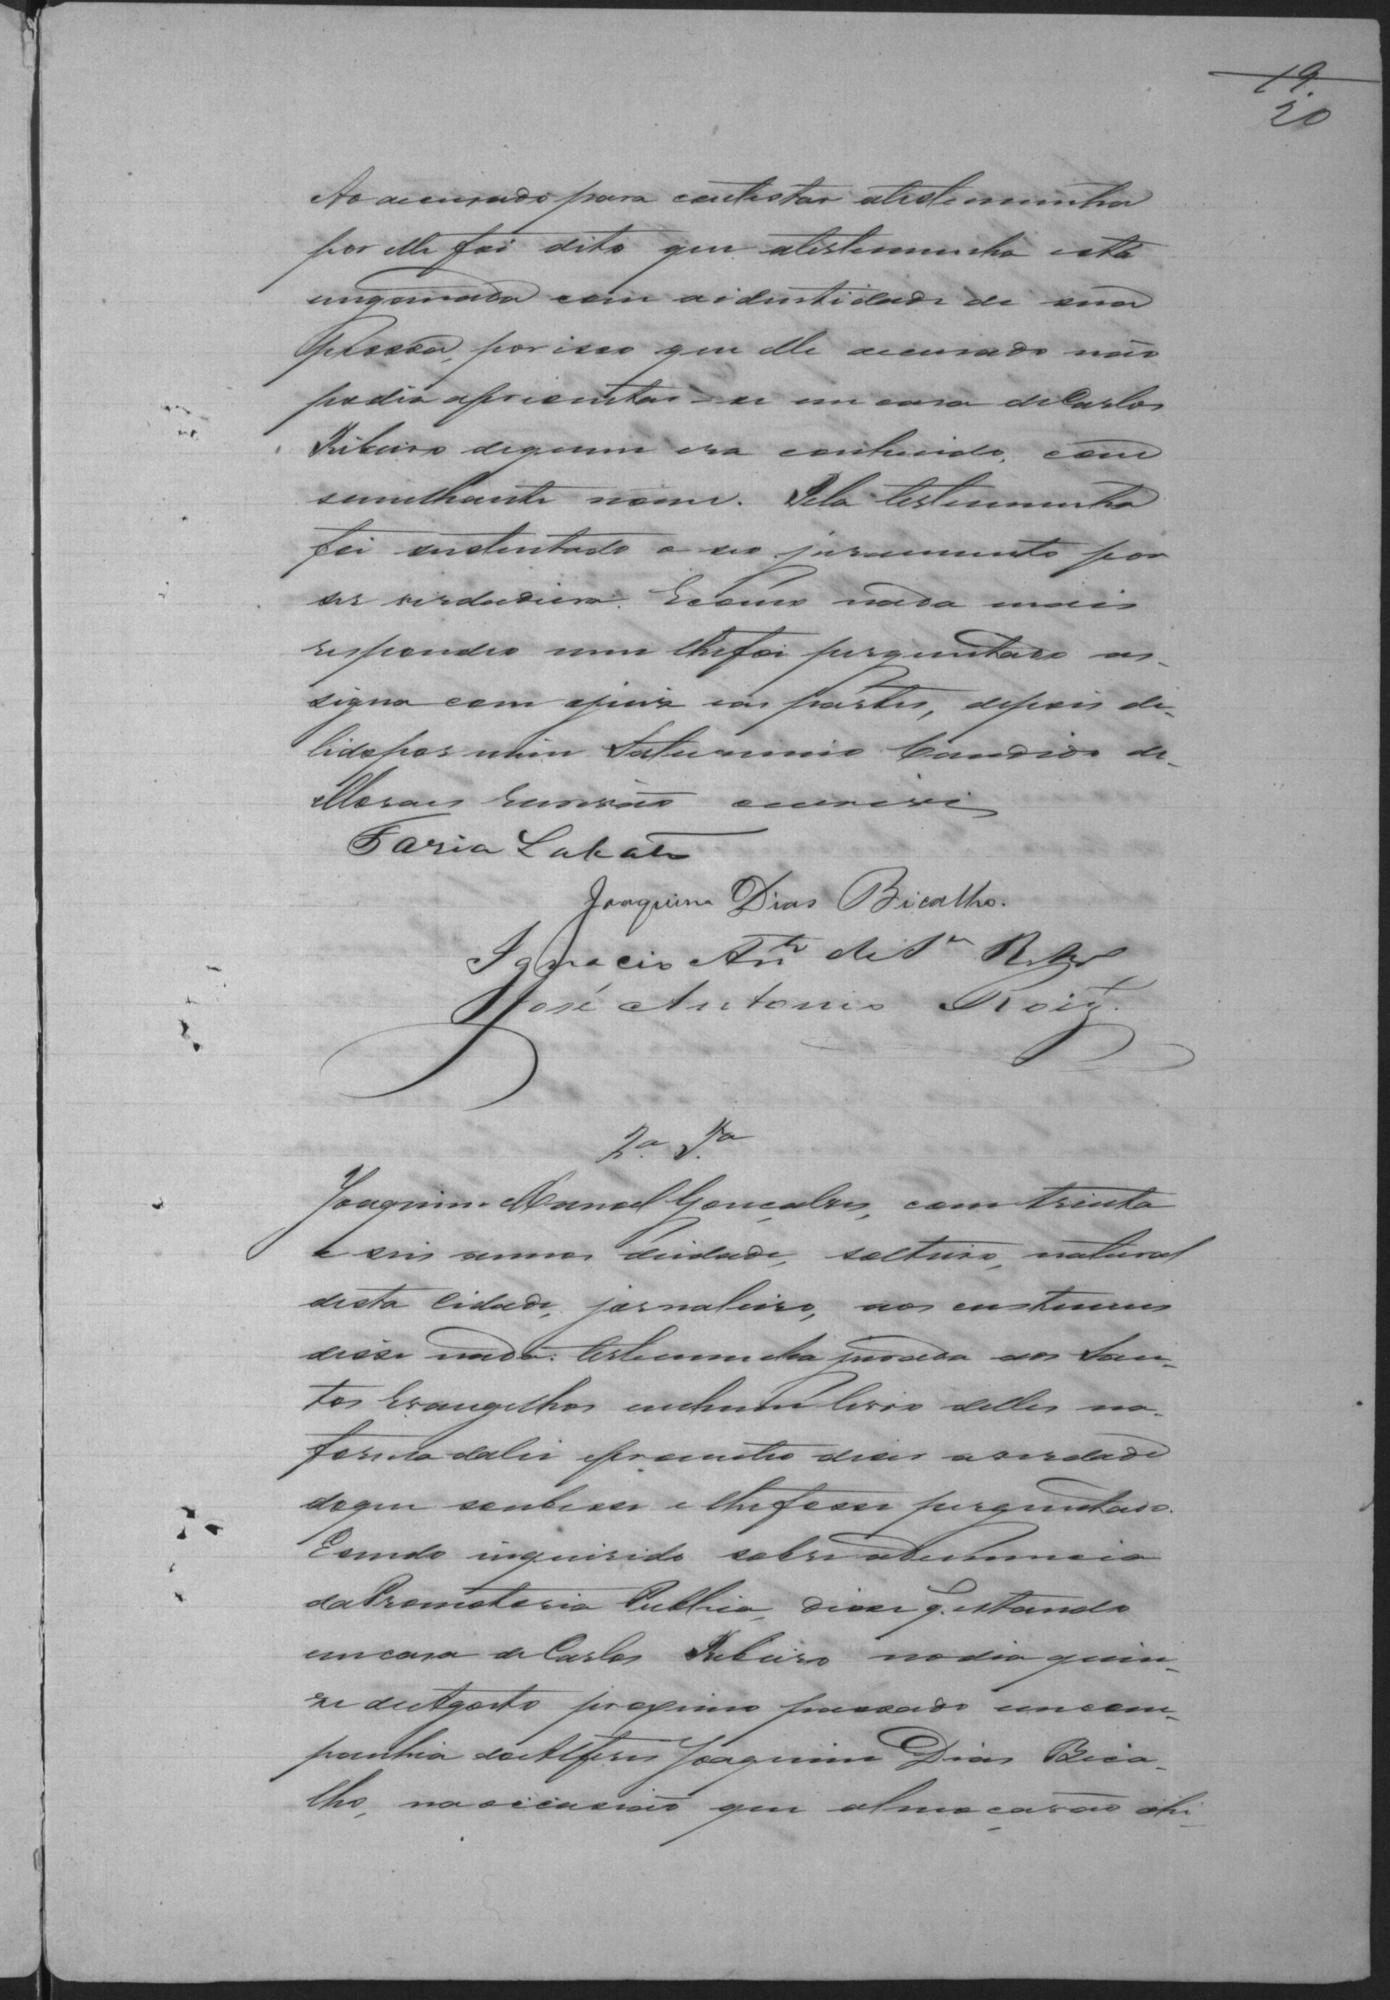 19.
20
Ao accusado para contestar atestemunha
por elle foi dito que atestemunha está
enganada com aidentidade de sua
pessôa, porisso que elle accusado não
podia apresentar-se em casa deCarlos
Ribeiro dequem era conhecido, com
semelhante nome. Pela testemunha
foi sustentado o seo juramento por
ser verdadeiro. Ecomo nada mais
respondeo nem lhefoi perguntado as-
signa com ojuiz eas partes, depois de
lido por mim Saturnino Candido de
Moraes Escrivão oescrevi
Faria Lobato
Joaquim Dias Bicalho.
Ignacio Antº de Sª
José Antonio Roiz.
2.a T.a
Joaquim Manoel Gonçalves, com trinta
e seis annos deidade, solteiro, natural
desta Cidade, jornaleiro, aos costumes
disse nada. Testemunha jurada aos San-
tos Evangelhos emhum livro delles na
forma dalei eprometteo dizer averdade
doque soubesse e lhefosse perguntado.
Esendo inquirido sobre adenuncia
daPromotoria Publica, disse q. estando
emcasa de Carlos Ribeiro nodia quin-
ze deAgosto proximo passado emcom-
panhia doAlferes Joaquim Dias Bica-
lho, naoccasião que almoçarão ahi